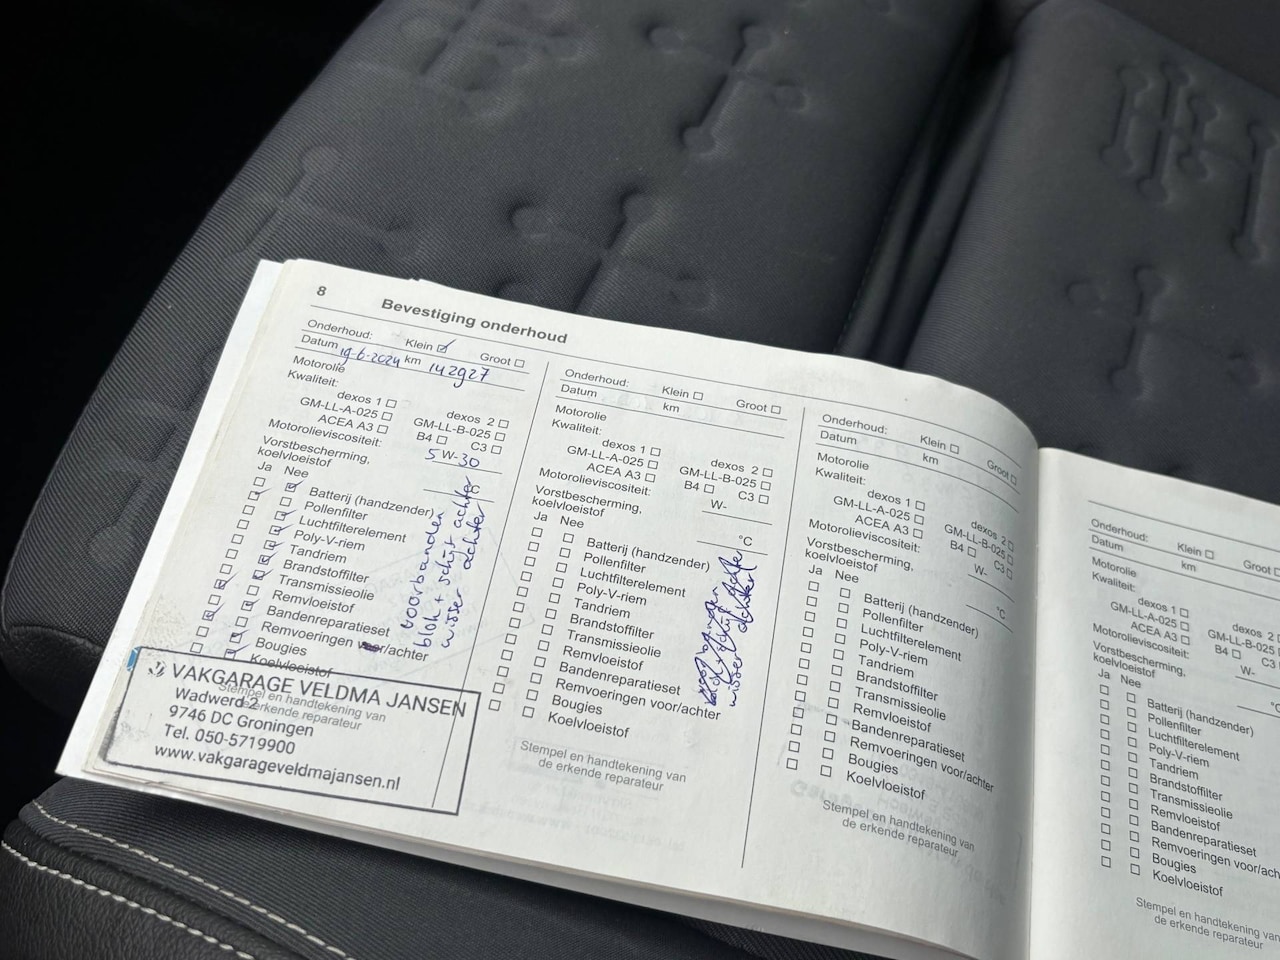 8
Bevestiging onderhoud
Onderhoud: Klein Groot
Datum 19-6-2024 km 142927
Motorolie
Kwaliteit:
dexos 1 dexos 2
GM-LL-A-025 GM-LL-B-025
ACEA A3 B4 C3
Motorolieviscositeit: 5 W-30
Vorstbescherming,
koelvloeistof
Ja Nee
Batterij (handzender)
Pollenfilter
Luchtfilterelement
Poly-V-riem
Tandriem
Brandstoffilter
Transmissieolie
Remvloeistof
Bandenreparatieset
Remvoeringen voor/achter
Bougies
Koelvloeistof
voorbanden
blok + schijf achter
wisser achter
Stempel en handtekening van
de erkende reparateur
VAKGARAGE VELDMA JANSEN
Wadwerd 2
9746 DC Groningen
Tel. 050-5719900
www.vakgarageveldmajansen.nl
Onderhoud: Klein Groot
Datum km
Motorolie
Kwaliteit:
dexos 1 dexos 2
GM-LL-A-025 GM-LL-B-025
ACEA A3 B4 C3
Motorolieviscositeit: W-
Vorstbescherming,
koelvloeistof °C
Ja Nee
Batterij (handzender)
Pollenfilter
Luchtfilterelement
Poly-V-riem
Tandriem
Brandstoffilter
Transmissieolie
Remvloeistof
Bandenreparatieset
Remvoeringen voor/achter
Bougies
Koelvloeistof
wisser achter
Stempel en handtekening van
de erkende reparateur
Onderhoud: Klein Groot
Datum km
Motorolie
Kwaliteit:
dexos 1 dexos 2
GM-LL-A-025 GM-LL-B-025
ACEA A3 B4 C3
Motorolieviscositeit: W-
Vorstbescherming,
koelvloeistof °C
Ja Nee
Batterij (handzender)
Pollenfilter
Luchtfilterelement
Poly-V-riem
Tandriem
Brandstoffilter
Transmissieolie
Remvloeistof
Bandenreparatieset
Remvoeringen voor/achter
Bougies
Koelvloeistof
Stempel en handtekening van
de erkende reparateur
Onderhoud: Klein Groot
Datum km
Motorolie
Kwaliteit:
dexos 1 dexos 2
GM-LL-A-025 GM-LL-B-025
ACEA A3 B4
Motorolieviscositeit: W-
Vorstbescherming,
koelvloeistof °C
Ja Nee
Batterij (handzender)
Pollenfilter
Luchtfilterelement
Poly-V-riem
Tandriem
Brandstoffilter
Transmissieolie
Remvloeistof
Bandenreparatieset
Remvoeringen voor/ach
Bougies
Koelvloeistof
Stempel en handtekening van
de erkende reparateur